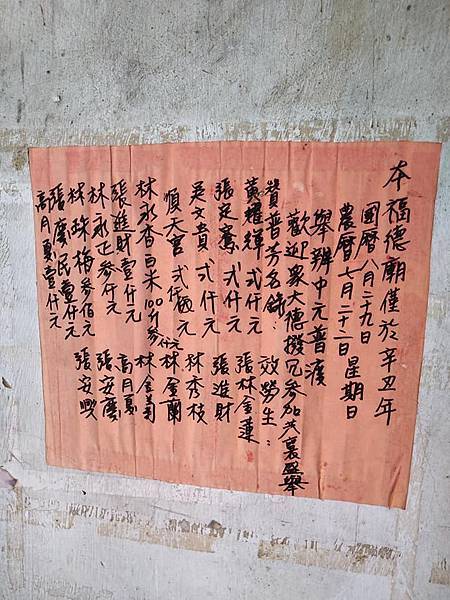 本福德廟僅於辛丑年
國曆八月二十九日
農曆七月二十二日 星期日
舉辦中元普渡
歡迎眾大德撥冗參加共襄盛舉
贊普芳名錄： 效勞生：
黃耀輝 弍仟元 張林金蓮
張定騫 弍仟元 張進財
吳文貴 弍仟元 林秀枝
順天宮 弍仟元 林金蘭
林永杏 白米100斤 參仟元 林金菊
張進財壹仟元 高月夏
林永正參仟元 張安慶
林珠梅參佰元 張安興
張慶民壹仟元
高月夏壹仟元